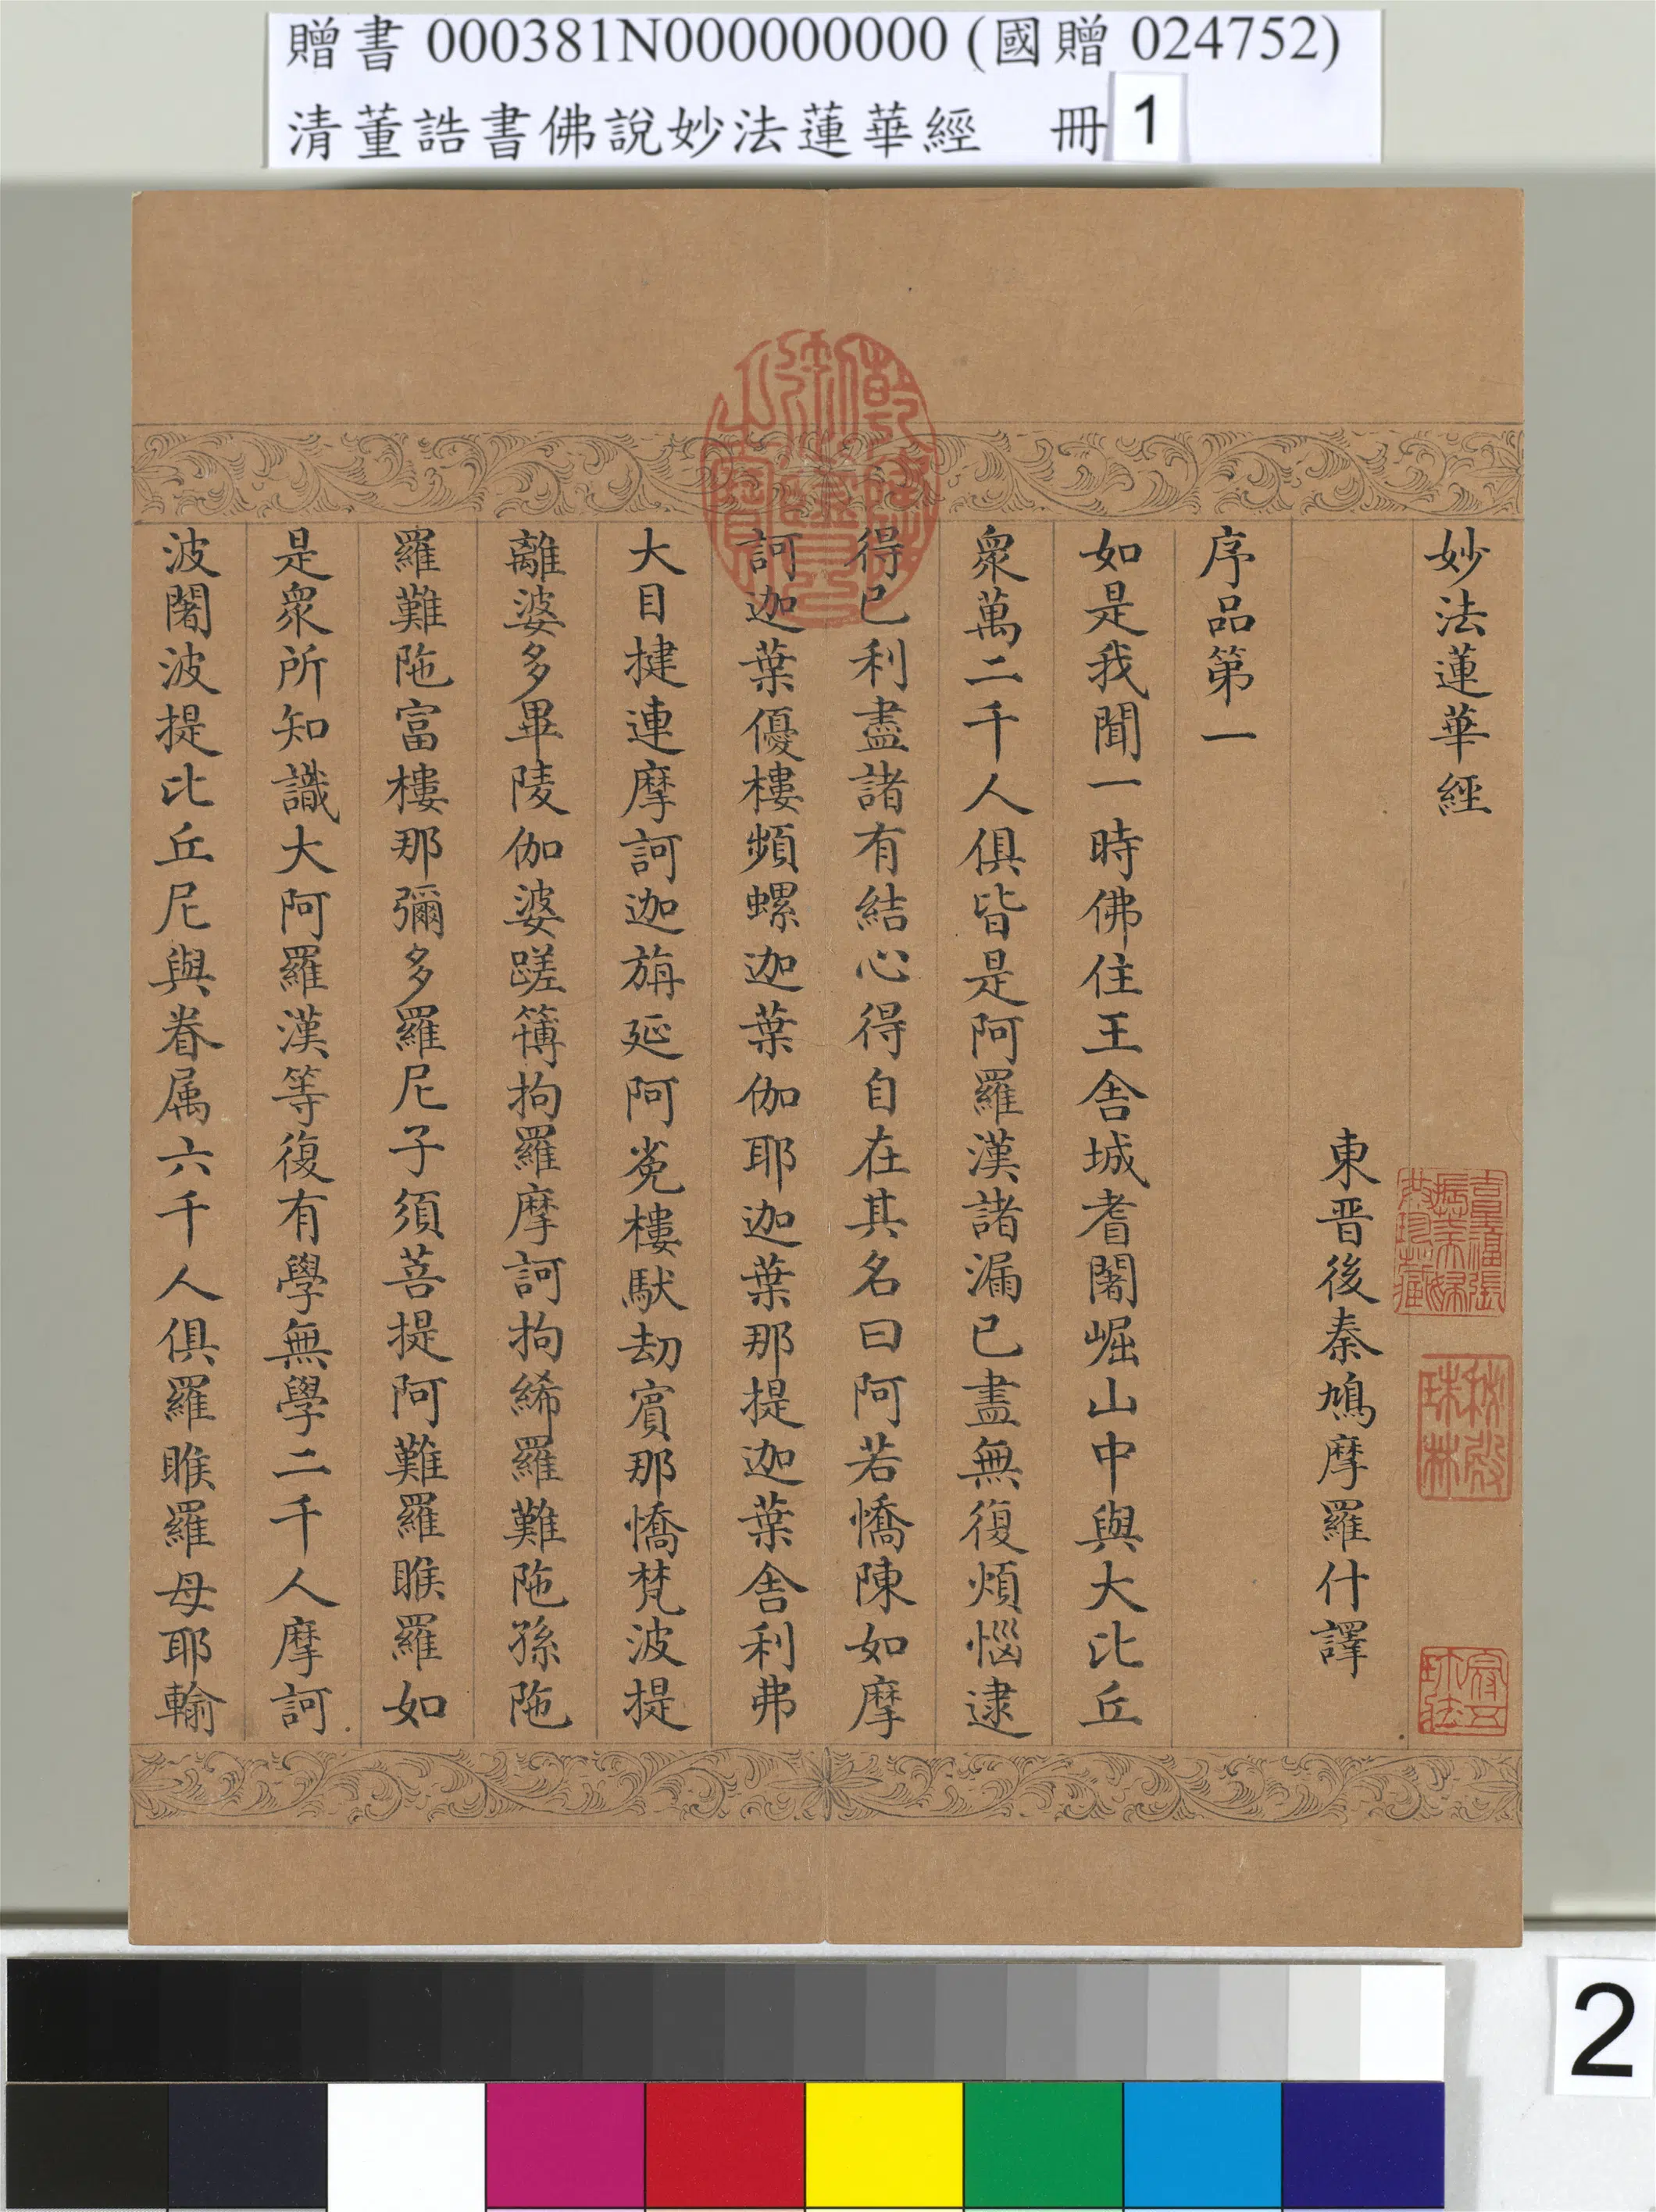 贈書 000381N000000000 (國贈 024752)
清董誥書佛說妙法蓮華經 冊 1
妙法蓮華經
東晉後秦鳩摩羅什譯
序品第一
如是我聞一時佛住王舍城耆闍崛山中與大比丘
衆萬二千人俱皆是阿羅漢諸漏已盡無復煩惱逮
得已利盡諸有結心得自在其名曰阿若憍陳如摩
訶迦葉優樓頻螺迦葉伽耶迦葉那提迦葉舍利弗
大目揵連摩訶迦旃延阿㝹樓馱劫賓那憍梵波提
離婆多畢陵伽婆蹉簿拘羅摩訶拘絺羅難陁孫陁
羅難陁富樓那彌多羅尼子須菩提阿難羅睺羅如
是衆所知識大阿羅漢等復有學無學二千人摩訶
波闍波提比丘尼與眷属六千人俱羅睺羅母耶輸
乾隆御覽之寶
秘殿珠林
2